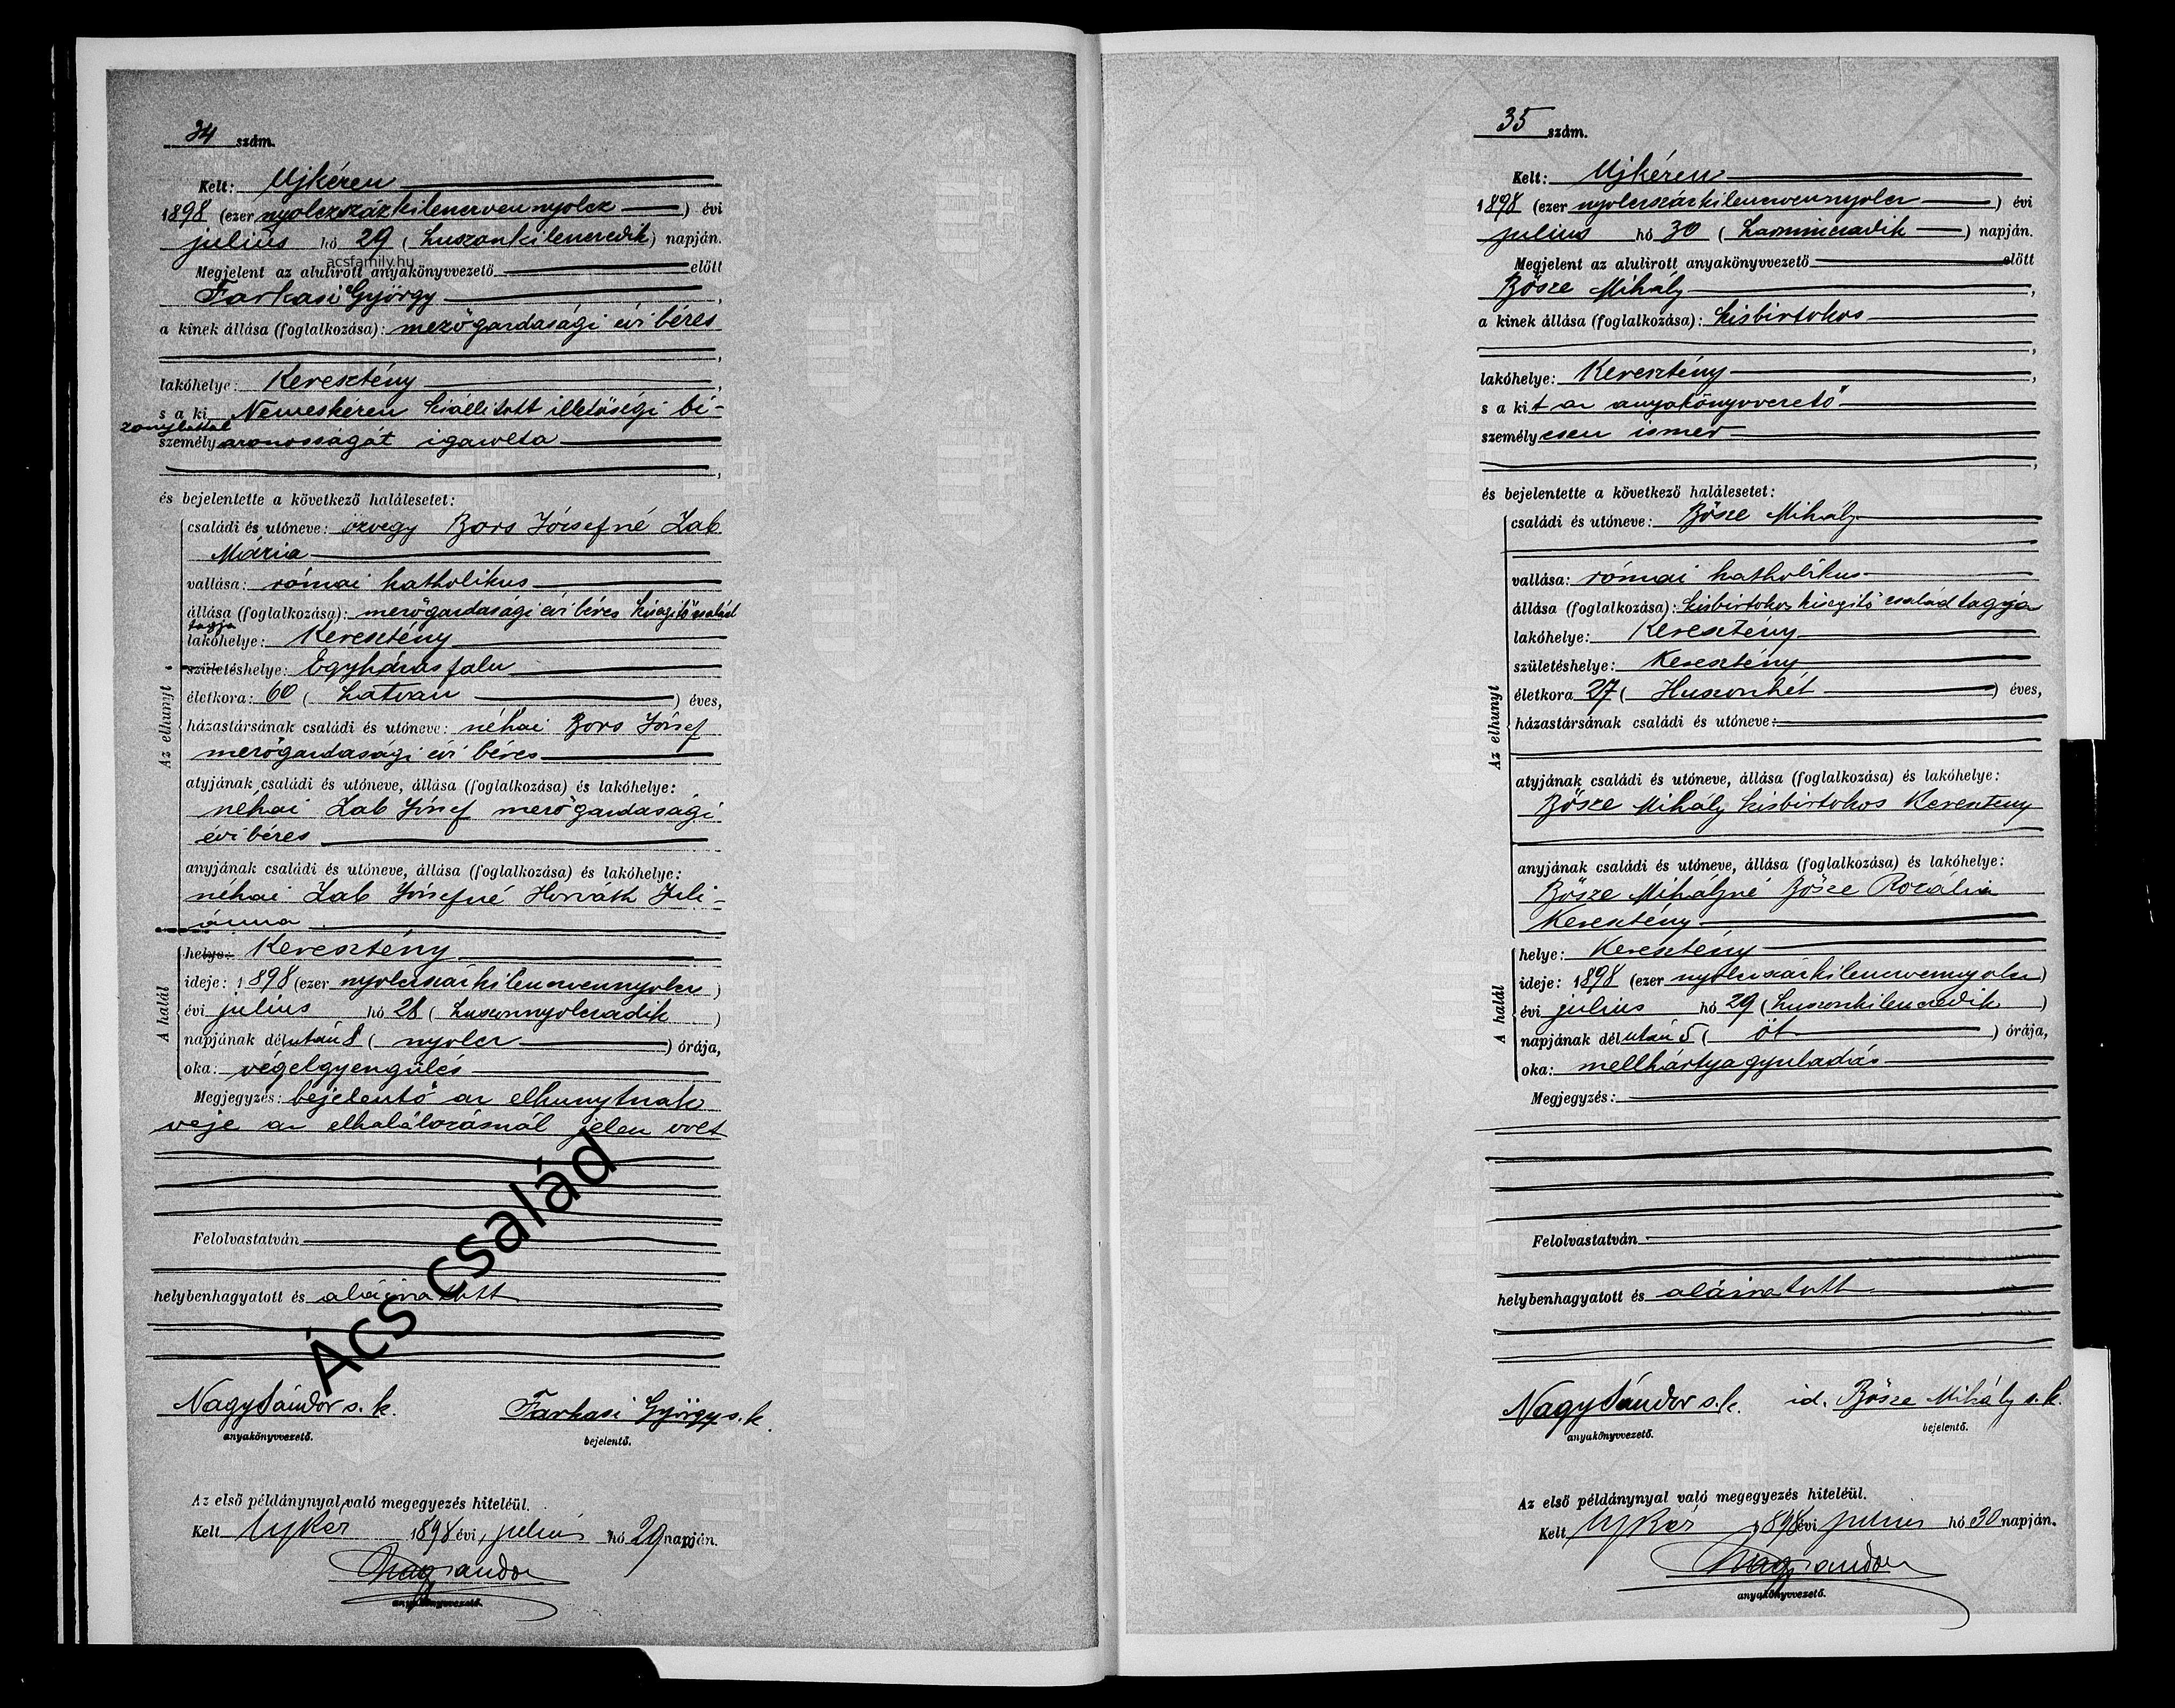 34 szám.
Kelt: Ujkéren
1898 (ezer nyolczszázkilenczvennyolcz) évi
julius hó 29 (huszonkilenczedik) napján.
acsfamily.hu
Megjelent az alulirott anyakönyvvezető előtt
Farkasi György,
a kinek állása (foglalkozása): mezőgazdasági évi béres
lakóhelye: Keresztény,
s a ki Nemeskéren kiállitott illetőségi bi-
zonylattal
személyazonosságát igazolta
és bejelentette a következő halálesetet:
Az elhunyt
családi és utóneve: özvegy Bors Józsefné Lab
Mária
vallása: római katholikus
állása (foglalkozása): mezőgazdasági évi béres kisegitő család
tagja
lakóhelye: Keresztény
születéshelye: Egyházasfalu
életkora: 60 (hatvan) éves,
házastársának családi és utóneve: néhai Bors József
mezőgazdasági évi béres
atyjának családi és utóneve, állása (foglalkozása) és lakóhelye:
néhai Lab József mezőgazdasági
évi béres
anyjának családi és utóneve, állása (foglalkozása) és lakóhelye:
néhai Lab Józsefné Horváth Juli-
ánna
A halál
helye: Keresztény
ideje: 1898 (ezer nyolczszázkilenczvennyolcz)
évi julius hó 28 (huszonnyolczadik)
napjának délután 8 (nyolcz) órája,
oka: végelgyengülés
Megjegyzés: bejelentő az elhunytnak
veje az elhalálozásnál jelen volt
Ács család
Felolvastatván
helybenhagyatott és aláiratott
Nagy Sándor s. k.
anyakönyvvezető.
Farkasi György s. k.
bejelentő.
Az első példánynyal való megegyezés hiteléül.
Kelt Ujkér 1898 évi julius hó 29 napján.
Nagy Sándor
anyakönyvvezető.
35 szám.
Kelt: Ujkéren
1898 (ezer nyolczszázkilenczvennyolcz) évi
julius hó 30 (harminczadik) napján.
Megjelent az alulirott anyakönyvvezető előtt
Bősze Mihály,
a kinek állása (foglalkozása): kisbirtokos
lakóhelye: Keresztény,
s a kit az anyakönyvvezető
személyesen ismer
és bejelentette a következő halálesetet:
Az elhunyt
családi és utóneve: Bősze Mihály
vallása: római katholikus
állása (foglalkozása): kisbirtokos kisegitő család tagja
lakóhelye: Keresztény
születéshelye: Keresztény
életkora 27 (Huszonhét) éves,
házastársának családi és utóneve:
atyjának családi és utóneve, állása (foglalkozása) és lakóhelye:
Bősze Mihály kisbirtokos Keresztény
anyjának családi és utóneve, állása (foglalkozása) és lakóhelye:
Bősze Mihályné Bősze Rozália
Keresztény
A halál
helye: Keresztény
ideje: 1898 (ezer nyolczszázkilenczvennyolcz)
évi julius hó 29 (huszonkilenczedik)
napjának délután 5 (öt) órája,
oka: mellhártyagyuladás
Megjegyzés:
Felolvastatván
helybenhagyatott és aláiratott
Nagy Sándor s. k.
anyakönyvvezető.
id. Bősze Mihály s. k.
bejelentő.
Az első példánynyal való megegyezés hiteléül.
Kelt Ujkér 1898 évi julius hó 30 napján.
Nagy Sándor
anyakönyvvezető.